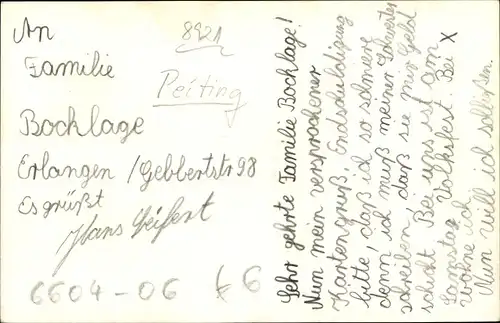 An
Familie
Bochlage
Erlangen / Gebbertstr 98
Es grüßt
Hans Seifert
8921
Peiting
6604-06 £6
Sehr gehrte Familie Bochlage!
Nun mein versprochener
Kartengruß. Endschuldigung
bitte, daß ich so schmiere
denn ich muß meiner Schwester
schreiben, daß sie mir Geld
schickt. Bei uns ist am
Samstag Volksfest. Bei X
wohne ich
Nun will ich schlißen.